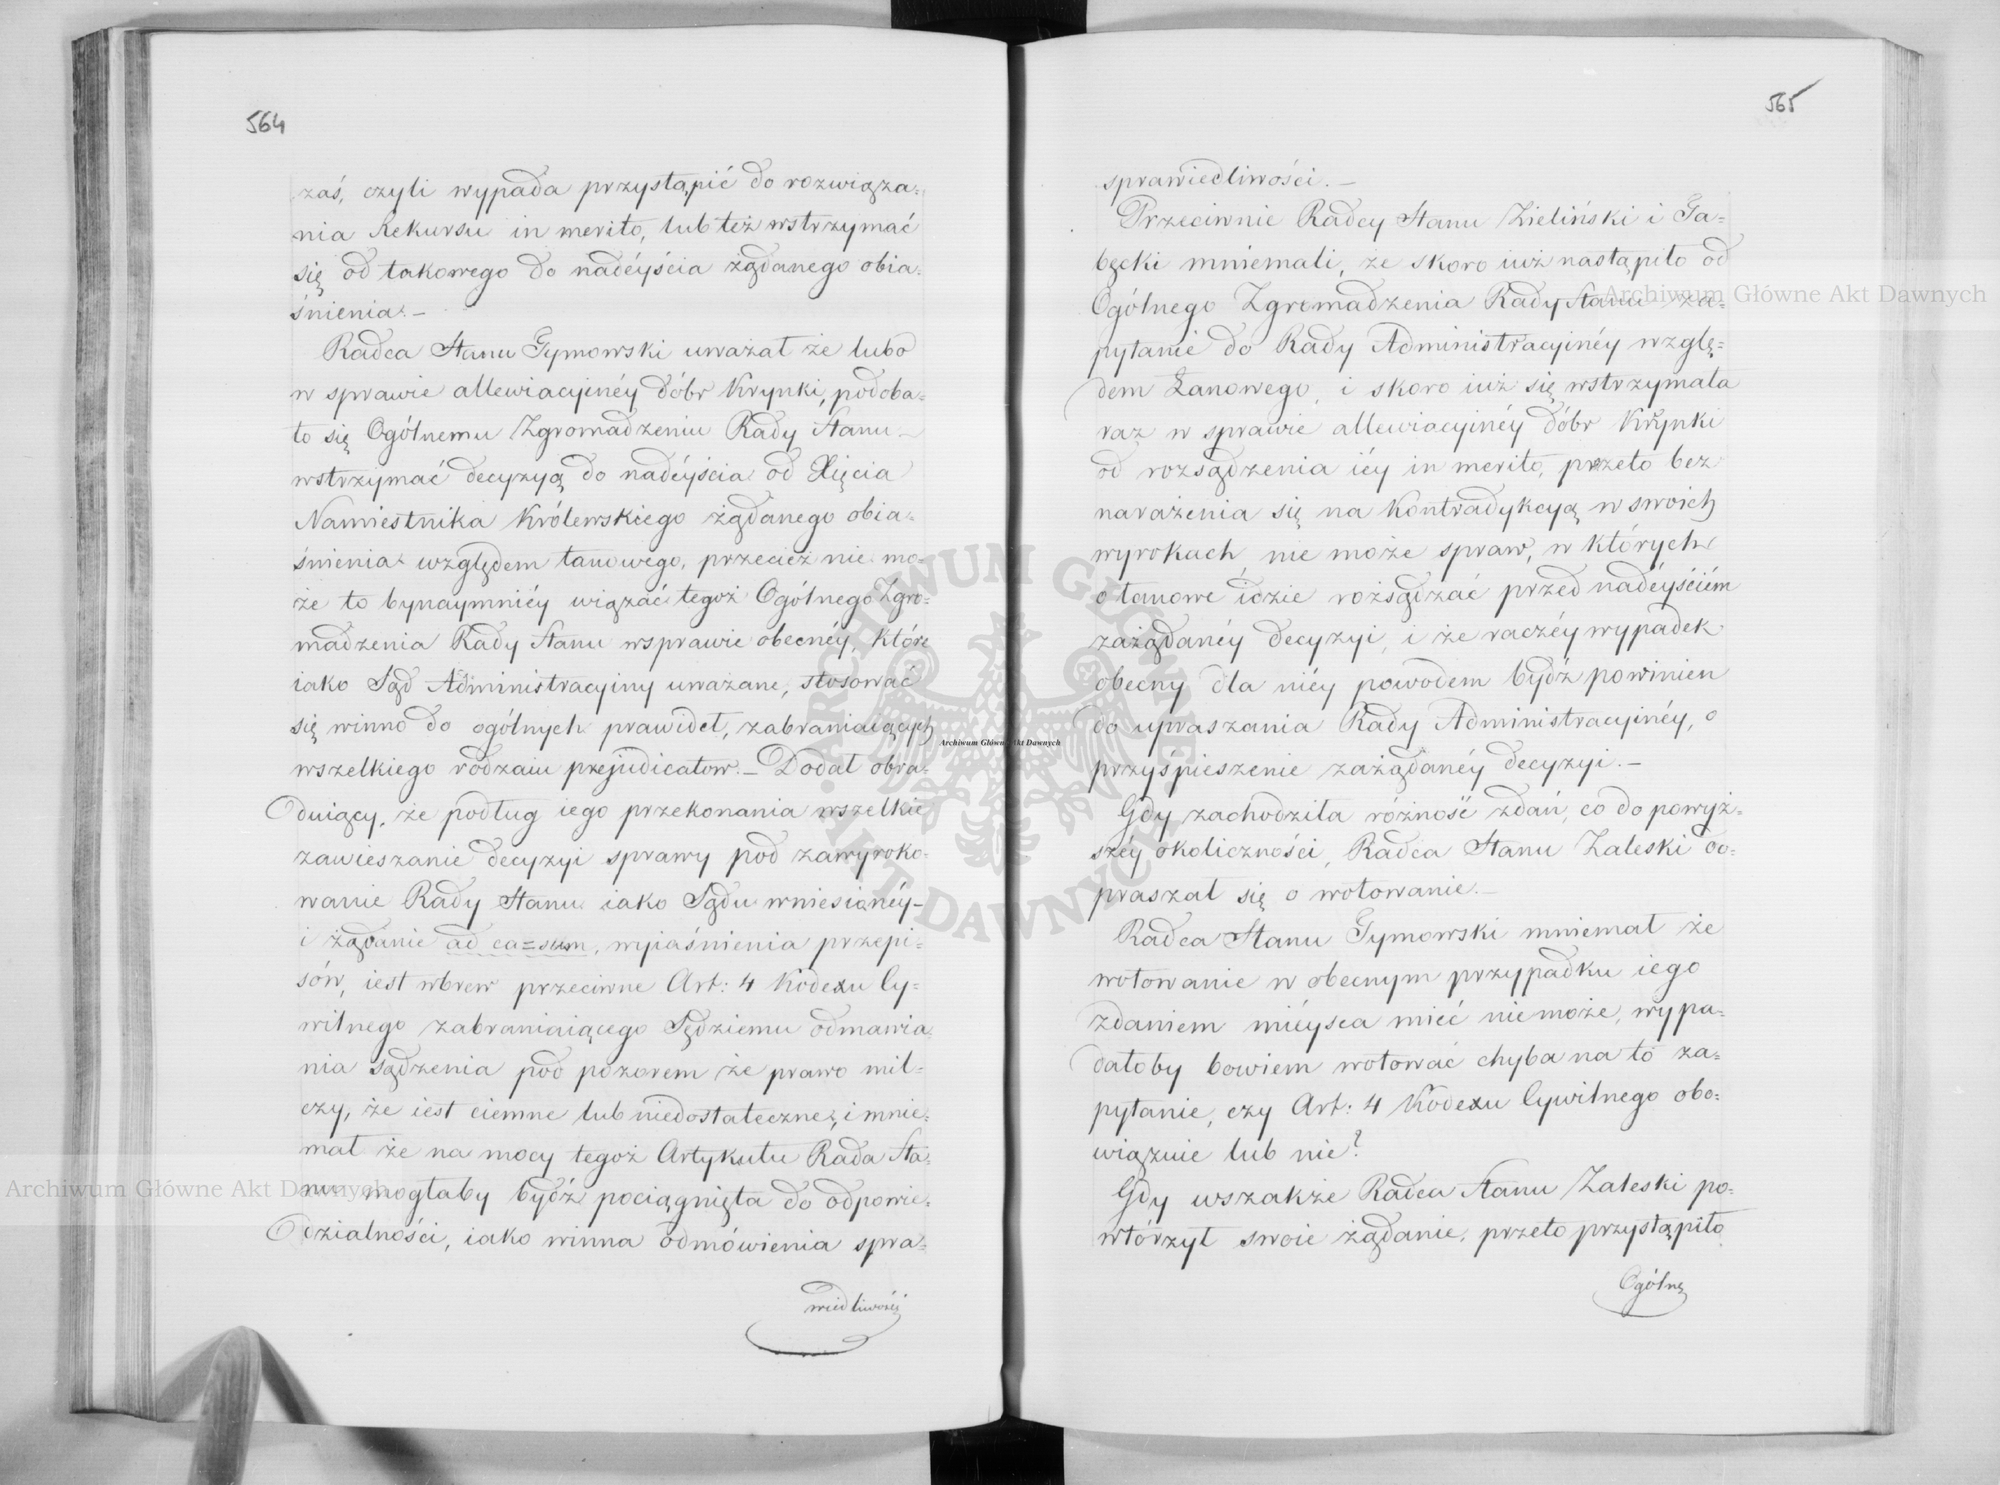 564
zaś, czyli wypada przystąpić do rozwiąza=
nia Rekursu in merito, lub też wstrzymać
się od takowego do nadéyścia żądanego obia=
śnienia. —
Radca Stanu Gymowski uważał że lubo
w sprawie allewiacyinéy dóbr Krynki, podoba=
ło się Ogólnemu Zgromadzeniu Rady Stanu —
wstrzymać decyzyą do nadéyścia od Xięcia
Namiestnika Królewskiego żądanego obia=
śnienia względem łanowego, przecież nie mo=
że to bynaymniéy wiązać tegoż Ogólnego Zgro=
madzenia Rady Stanu wsprawie obecnéy, które
iako Sąd Administracyiny uważane, stosować
się winno do ogólnych prawideł, zabraniaiących
wszelkiego rodzaiu prejudicatow. — Dodał obra=
duiący, że podług iego przekonania wszelkie
zawieszanie decyzyi sprawy pod zawyroko=
wanie Rady Stanu iako Sądu wniesionéy —
i żądanie ad ca=sum, wyiaśnienia przepi=
sów, iest wbrew przeciwne Art: 4 Kodexu Cy=
wilnego zabraniaiącego Sędziemu odmawia=
nia sądzenia pod pozorem że prawo mil=
czy, że iest ciemne lub niedostateczne, i mnie=
mał że na mocy tegoż Artykułu Rada Sta=
nu mogłaby bydź pociągnięta do odpowie=
dzialności, iako winna odmówienia spra=
wiedliwości
565
sprawiedliwości. —
Przeciwnie Radcy Stanu Zieliński i Ga=
bęcki mniemali, że skoro iuż nastąpiło od
Ogólnego Zgromadzenia Rady Stanu za=
pytanie do Rady Administracyinéy wzglę=
dem Łanowego, i skoro iuż się wstrzymała
raz w sprawie allewiacyinéy dóbr Krynki
od rozsądzenia iéy in merito, przeto bez
narażenia się na Kontradykcyą w swoich
wyrokach, nie może spraw, w których
o łanowe idzie rozsądzać przed nadéyściém
zażądanéy decyzyi, i że raczéy wypadek
obecny dla niéy powodem bydź powinien
do upraszania Rady Administracyinéy, o
przyśpieszenie zażądanéy decyzyi. —
Gdy zachodziła różność zdań, co do powyż=
széy okoliczności, Radca Stanu Zaleski do=
praszał się o wotowanie. —
Radca Stanu Gymowski mniemał że
wotowanie w obecnym przypadku iego
zdaniem mieysca mieć nie może, wypa=
dałoby bowiem wotować chyba na to za=
pytanie, czy Art: 4 Kodexu Cywilnego obo=
wiązuie lub nie?
Gdy wszakże Radca Stanu Zaleski po=
wtórzył swoie żądanie, przeto przystąpiło
Ogólne
Archiwum Główne Akt Dawnych
Archiwum Główne Akt Dawnych
Archiwum Główne Akt Dawnych
ARCHIWUM GŁÓWNE · AKT DAWNYCH ·